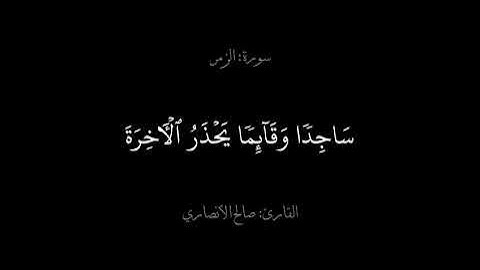 سورة: الزمر
سَاجِدًا وَقَآئِمًا يَحْذَرُ ٱلْأَخِرَةَ
القارئ: صالح الأنصاري